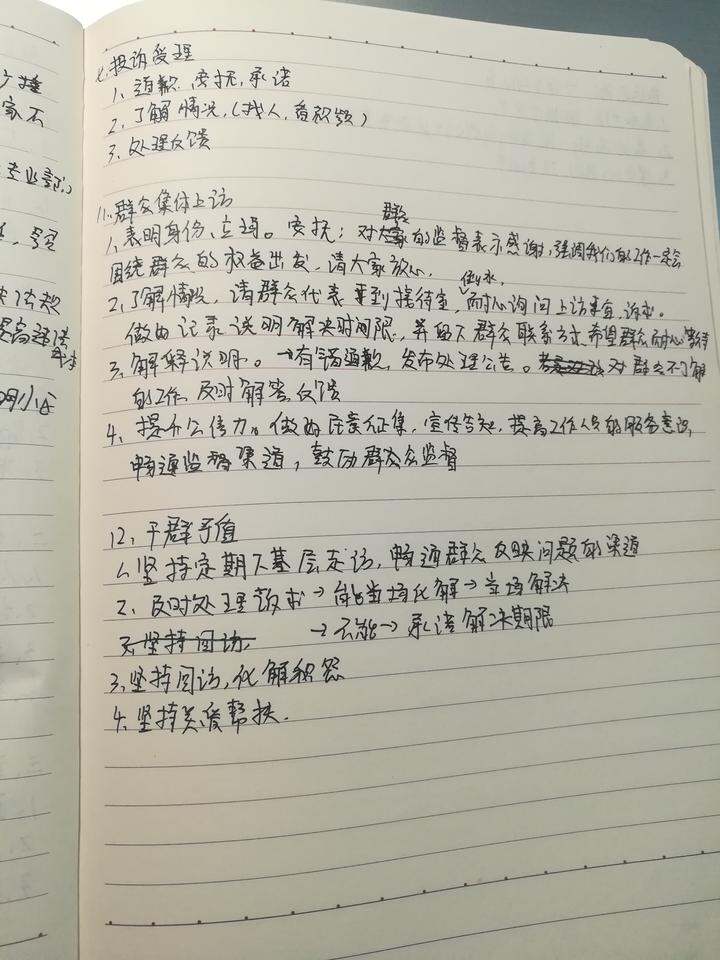 投诉受理
1、道歉、安抚、承诺
2、了解情况,(找人,看视频)
3、处理反馈
11、群众集体上访
1、表明身份、立场。安抚:对群众的监督表示感谢,强调我们的工作一定会
围绕群众的权益出发,请大家放心,
2、了解情况,请群众代表来到接待室,倒水,耐心询问上访来由、诉求。
做好记录说明解决时间限,并留下群众联系方式,希望群众耐心等待
3、解释说明。→有错道歉,发布处理公告。对群众不了解
的工作,及时解答反馈
4、提升公信力。做好民意征集,宣传告知,提高工作人员的服务意识,
畅通监督渠道,鼓励群众监督
12、干群矛盾
1、坚持定期下基层走访,畅通群众反映问题的渠道
2、及时处理诉求→能当场化解→当场解决
3、坚持回访, →不能→承诺解决期限
3、坚持回访,化解积怨
4、坚持关爱帮扶.